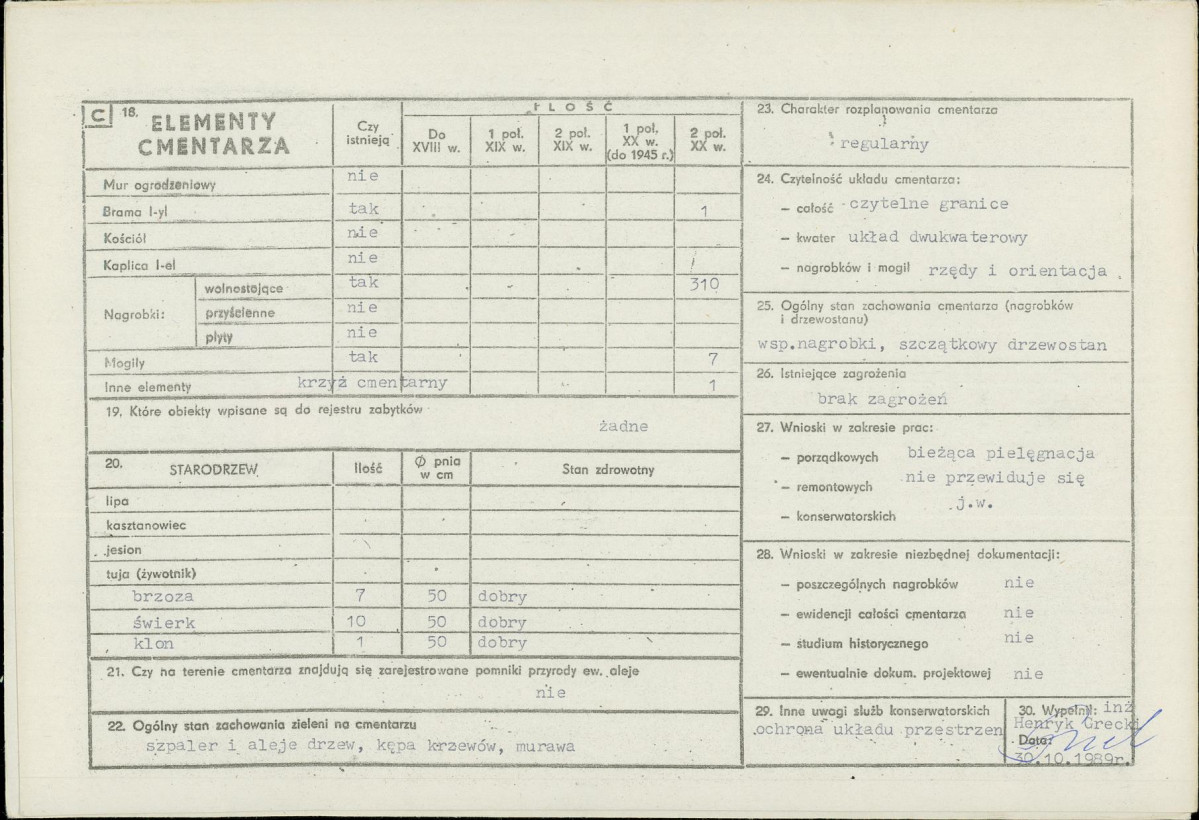 C 18. ELEMENTY CMENTARZA
Czy istnieją
ILOŚĆ
Do XVIII w.
1 poł. XIX w.
2 poł. XIX w.
1 poł. XX w. (do 1945 r.)
2 poł. XX w.
Mur ogrodzeniowy nie
Brama I-yl tak 1
Kościół nie
Kaplica I-el nie
Nagrobki:
wolnostojące tak 310
przyścienne nie
płyty nie
Mogiły tak 7
Inne elementy krzyż cmentarny 1
19. Które obiekty wpisane są do rejestru zabytków
żadne
20. STARODRZEW Ilość Ø pnia w cm Stan zdrowotny
lipa
kasztanowiec
jesion
tuja (żywotnik)
brzoza 7 50 dobry
świerk 10 50 dobry
klon 1 50 dobry
21. Czy na terenie cmentarza znajdują się zarejestrowane pomniki przyrody ew. aleje
nie
22. Ogólny stan zachowania zieleni na cmentarzu
szpaler i aleje drzew, kępa krzewów, murawa
23. Charakter rozplanowania cmentarza
regularny
24. Czytelność układu cmentarza:
— całość czytelne granice
— kwater układ dwukwaterowy
— nagrobków i mogił rzędy i orientacja
25. Ogólny stan zachowania cmentarza (nagrobków
i drzewostanu)
wsp.nagrobki, szczątkowy drzewostan
26. Istniejące zagrożenia
brak zagrożeń
27. Wnioski w zakresie prac:
— porządkowych bieżąca pielęgnacja
— remontowych nie przewiduje się
— konserwatorskich j.w.
28. Wnioski w zakresie niezbędnej dokumentacji:
— poszczególnych nagrobków nie
— ewidencji całości cmentarza nie
— studium historycznego nie
— ewentualnie dokum. projektowej nie
29. Inne uwagi służb konserwatorskich
ochrona układu przestrzen
30. Wypełnił: inż
Henryk Grecki
Data:
30.10.1989r.